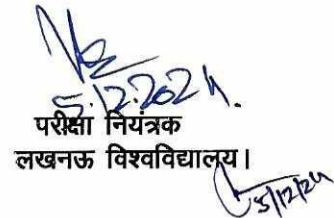 5.12.2024.
परीक्षा नियंत्रक
लखनऊ विश्वविद्यालय।
5/12/24